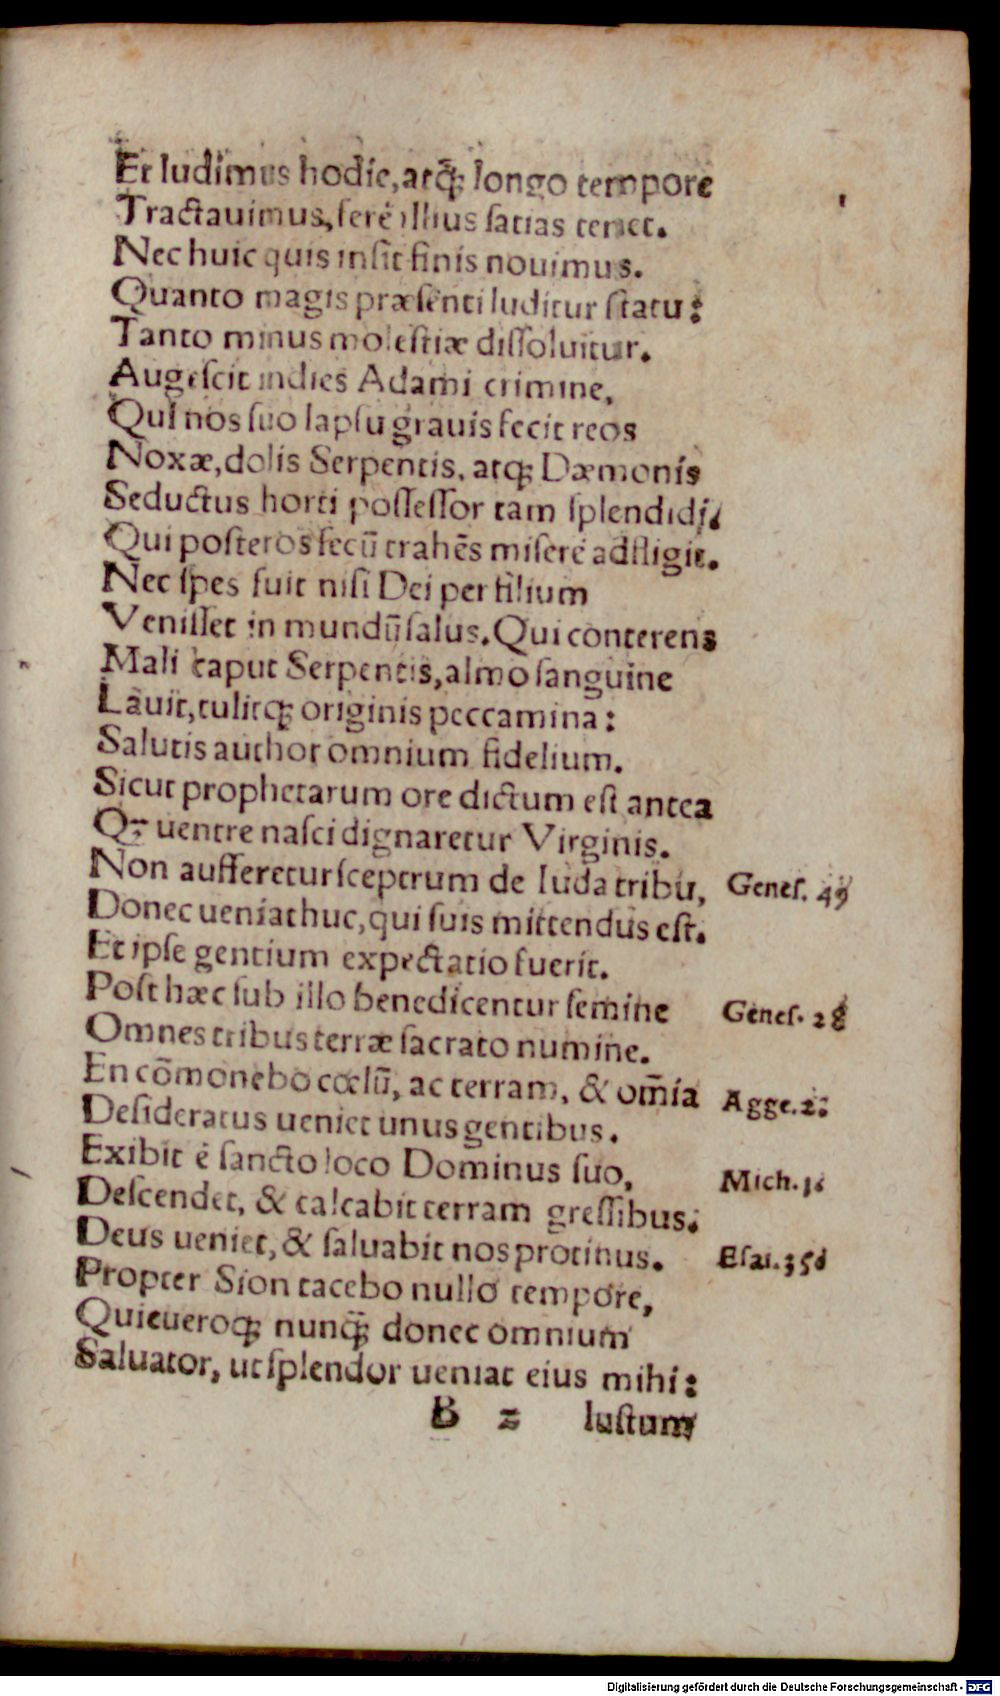 Et ludimus hodie, atq́ꝫ longo tempore
Tractauimus, ferè illius satias tenet.
Nec huic quis insit finis nouimus.
Quanto magis præsenti luditur statu:
Tanto minus molestiæ dissoluitur.
Augescit indies Adami crimine,
Qui nos suo lapsu grauis fecit reos
Noxæ, dolis Serpentis, atqꝫ Dæmonis
Seductus horti possessor tam splendidi,
Qui posteros secū trahēs miserè adfligit.
Nec spes fuit nisi Dei per filium
Venisset in mundū salus. Qui conterens
Mali caput Serpentis, almo sanguine
Lauit, tulitqꝫ originis peccamina:
Salutis author omnium fidelium.
Sicut prophetarum ore dictum est antea
Qꝫ uentre nasci dignaretur Virginis.
Non aufferetur sceptrum de Iuda tribu, Genes. 49
Donec ueniat huc, qui suis mittendus est.
Et ipse gentium expectatio fuerit.
Post hæc sub illo benedicentur semine Genes. 28
Omnes tribus terræ sacrato numine.
En cōmonebo cœlū, ac terram, & om̄ia Agge. 2.
Desideratus ueniet unus gentibus.
Exibit è sancto loco Dominus suo, Mich. 1.
Descendet, & calcabit terram gressibus.
Deus ueniet, & saluabit nos protinus. Esai. 35.
Propter Sion tacebo nullo tempore,
Quieueroqꝫ nunq̄ꝫ donec omnium
Saluator, ut splendor ueniat eius mihi:
B 2 Iustum
Digitalisierung gefördert durch die Deutsche Forschungsgemeinschaft - DFG